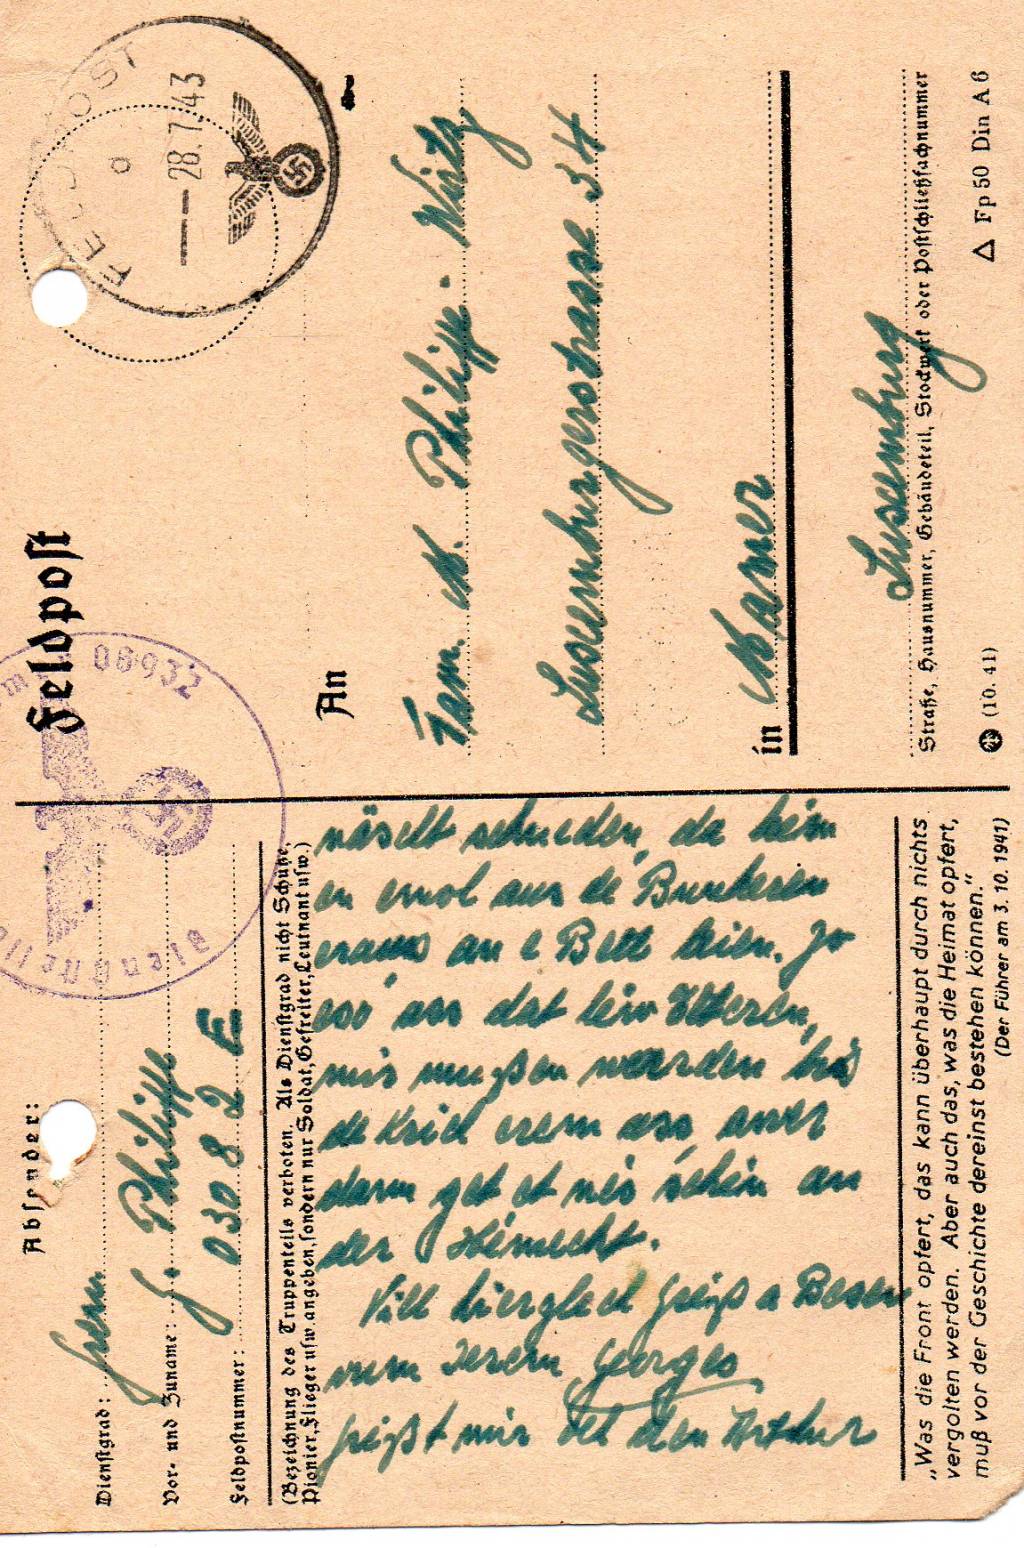 Feldpost
FELDPOST
d
28.7.43
08932
Absender:
Dienstgrad:
Vor- und Zuname: G. Philippe
Feldpostnummer: 03082 E
(Bezeichnung des Truppenteils verboten. Als Dienstgrad nicht Schütze,
Pionier, Flieger usw. angeben, sondern nur Soldat, Gefreiter, Leutnant usw.)
da keim
en emol aus de Bunkeren
eraus an e Bett leien. Jo
eso ass dat léiw Elteren,
mir mußen waarden bis
de Krich erem ass, awer
dann get et nês schéin an
der Hémecht.
Vill hierzlech Greiß a Besen
vum Jerem Georges
greißt mir den Arthur
„Was die Front opfert, das kann überhaupt durch nichts
vergolten werden. Aber auch das, was die Heimat opfert,
muß vor der Geschichte dereinst bestehen können.“
(Der Führer am 3. 10. 1941)
An
Fam. M. Philippe-Wirtz
Luxemburgerstrasse 34
in Kamer
Luxemburg
Straße, Hausnummer, Gebäudeteil, Stockwerk oder Postschließfachnummer
(10. 41)
△ Fp 50 Din A 6